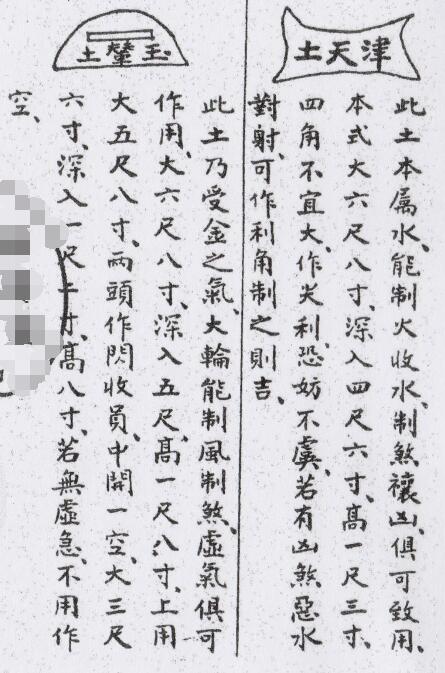 津天土
此土本属水、能制火收水、制煞禳凶、俱可致用、
本式大六尺八寸、深入四尺六寸、高一尺三寸、
四角不宜大、作尖利、恐妨不虞、若有凶煞惡水
對射、可作利角制之則吉、
玉輦土
此土乃受金之氣、大輪能制風制煞、虛氣俱可
作用、大六尺八寸、深入五尺、高一尺八寸、上用
大五尺八寸、兩頭作閃收員、中開一空、大三尺
六寸、深入一尺二寸、高八寸、若無虛急、不用作
空、